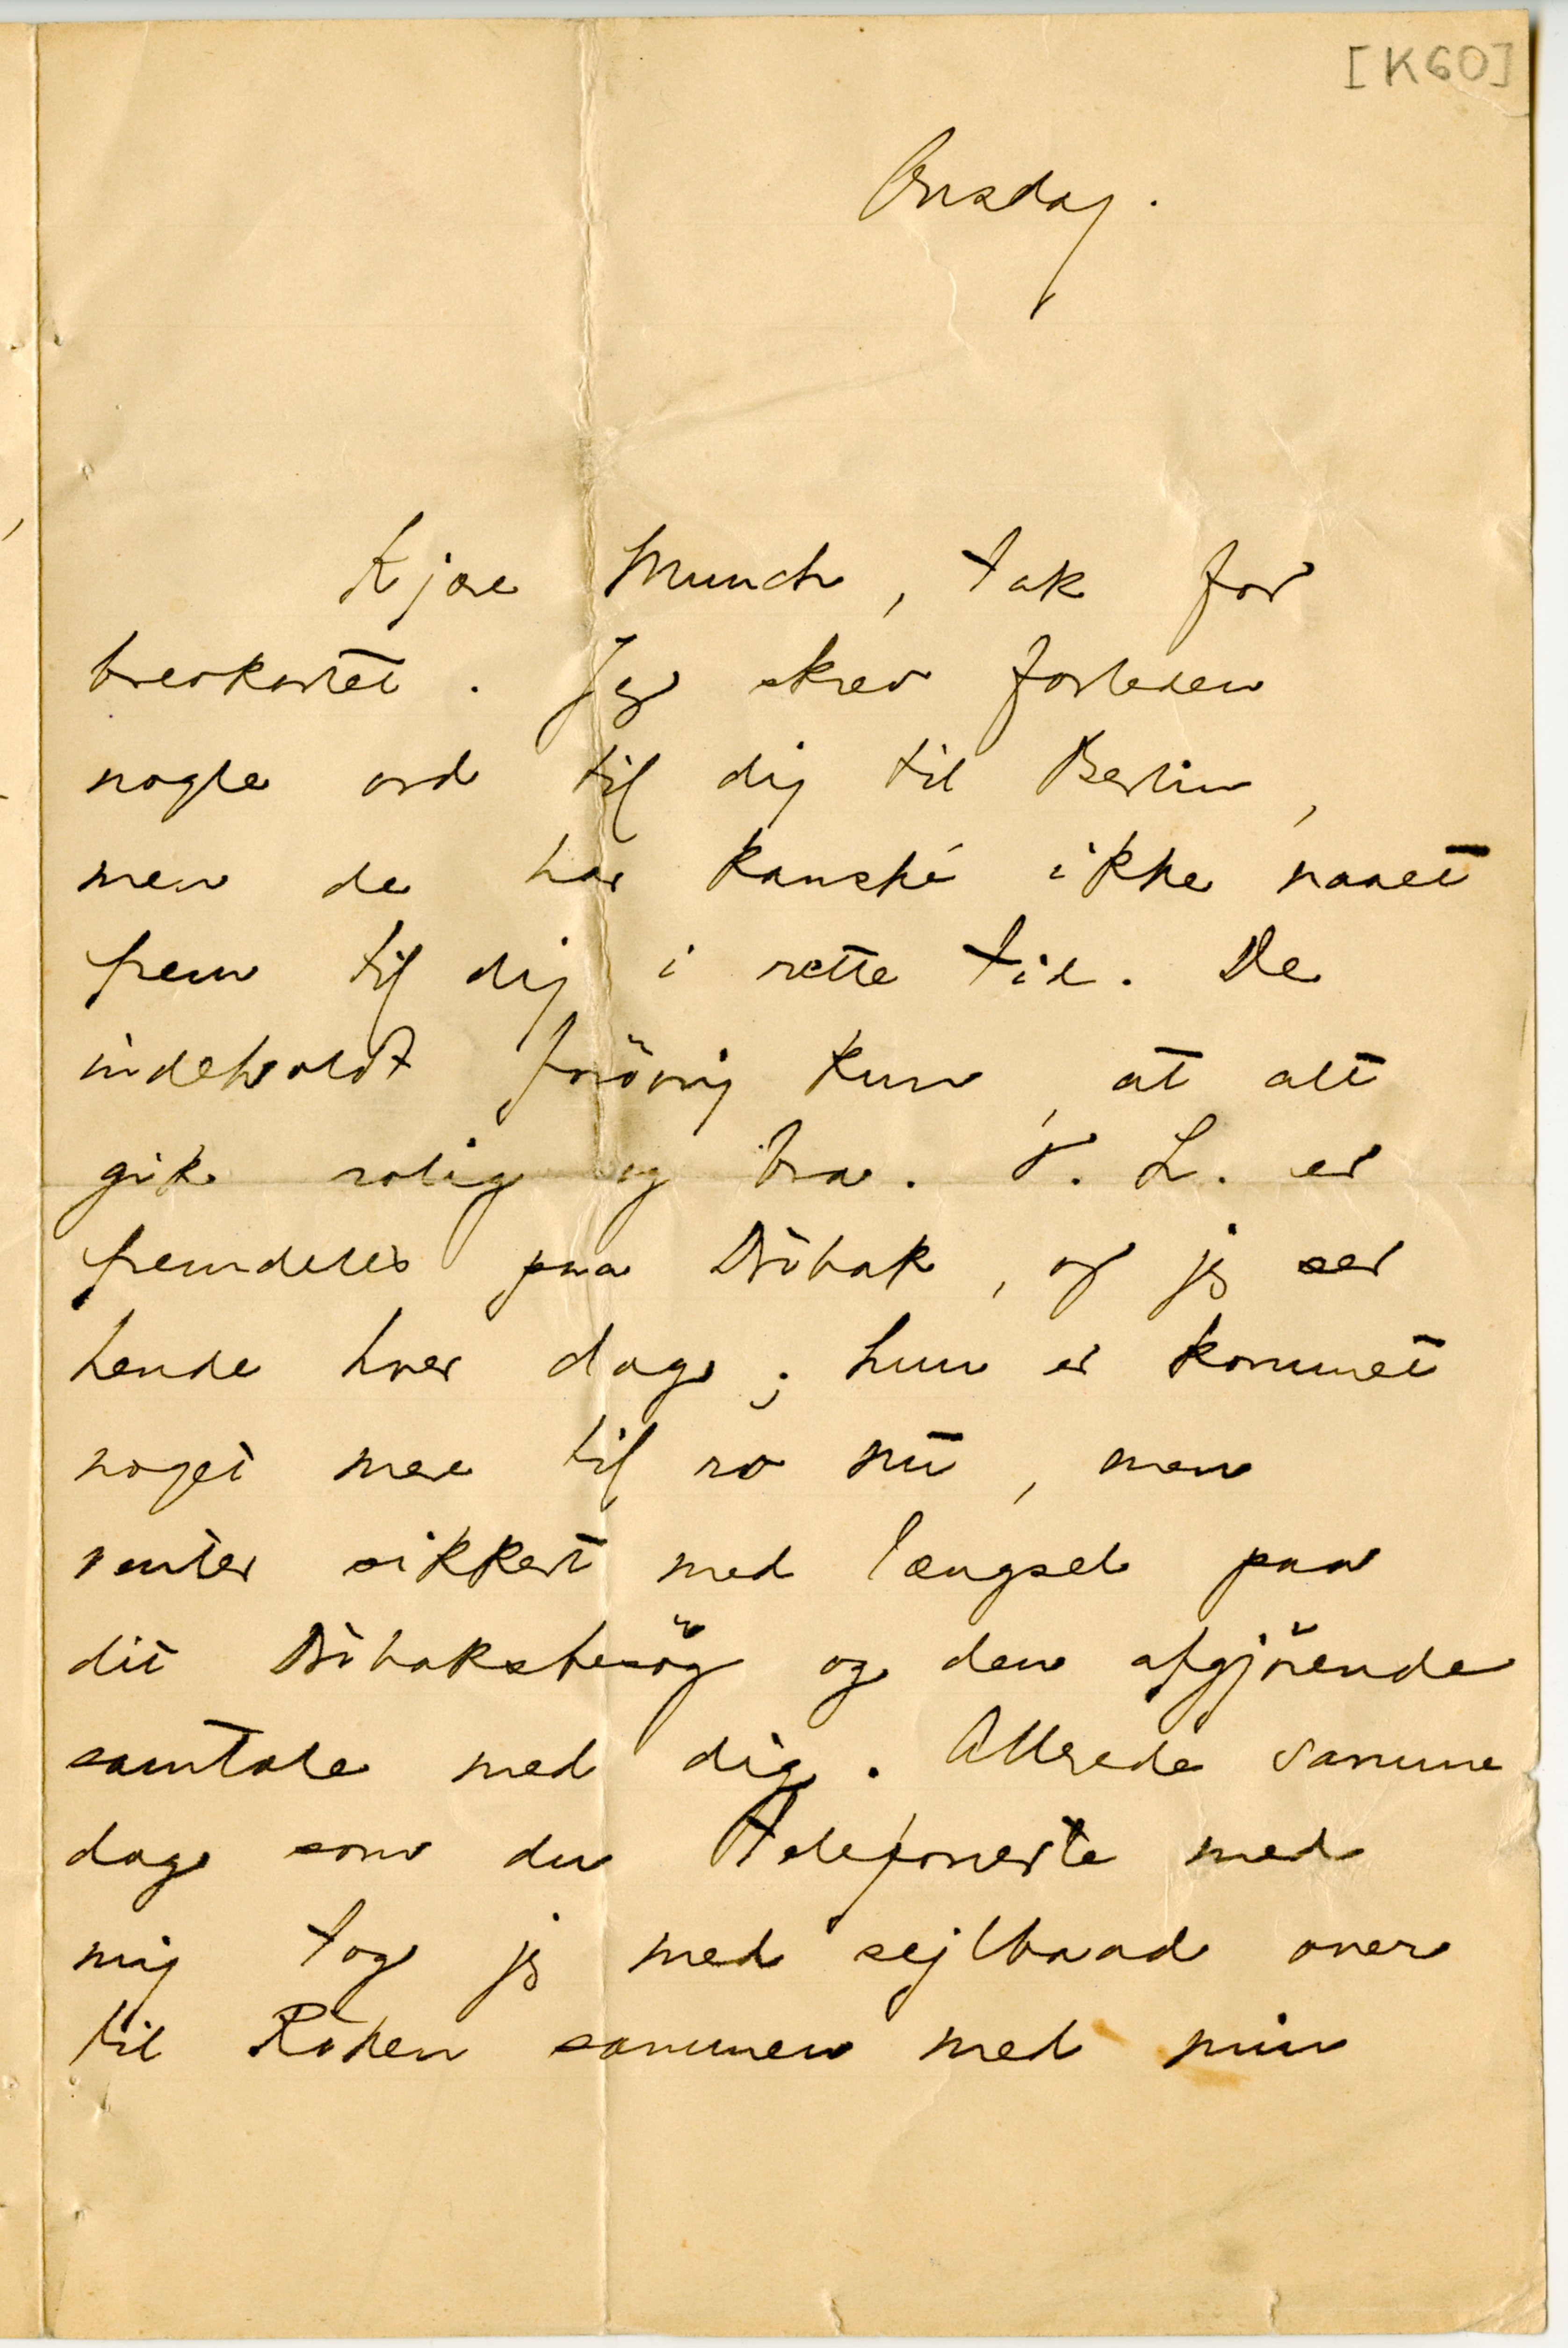 [K60]
Onsdag.
Kjære Munch, tak for
brevkortet. Jeg skrev forleden
nogle ord til dig til Berlin,
men de har kanské ikke naaet
frem til dig i rette tid. De
indeholdt forövrig kun, at alt
gik rolig og bra. T. L. er
fremdeles paa Dröbak, og jeg ser
hende hver dag; hun er kommet
noget mere til ro nu, men
venter sikkert med længsel paa
dit Dröbaksbesög og den afgjörende
samtale med dig. Allerede samme
dag som du telefonerte med
mig tog jeg med sejlbaad over
til Röken sammen med min